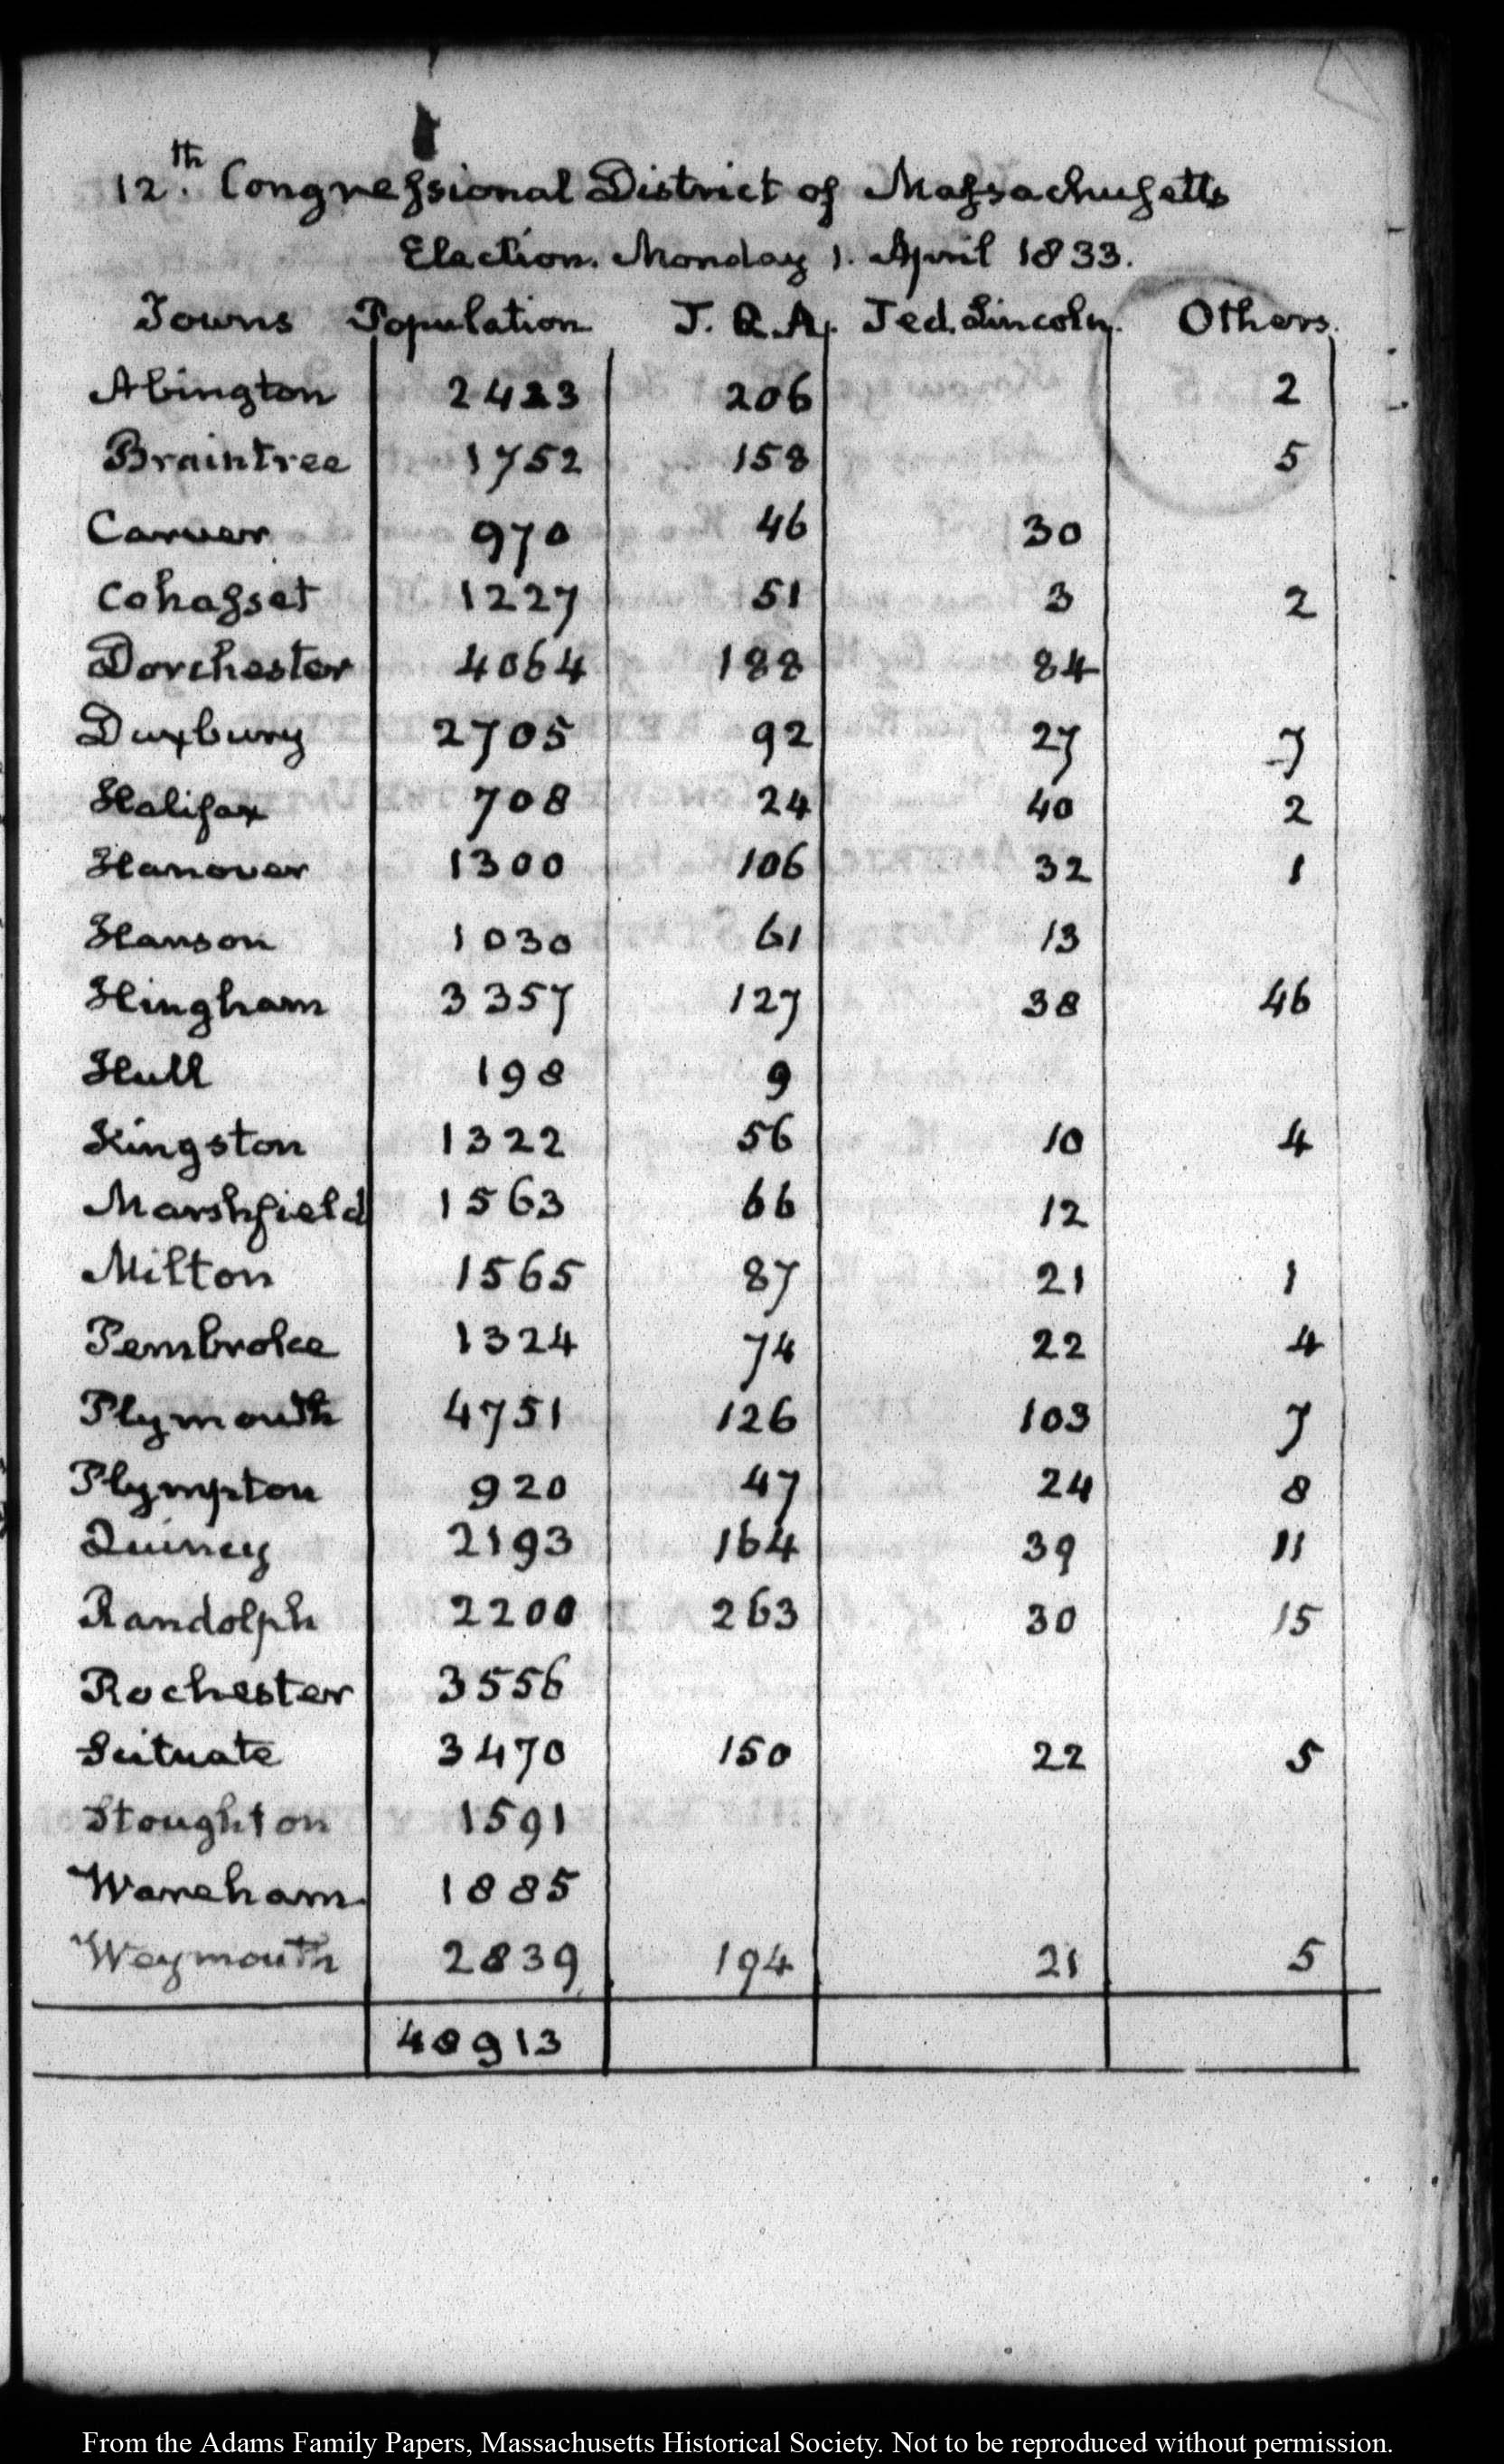 12.th Congressional District of Massachusetts
Election. Monday 1. April 1833.
Towns Population J. Q. A. Jed. Lincoln. Others.
Abington 2423 206 2
Braintree 1752 158 5
Carver 970 46 30
Cohasset 1227 51 3 2
Dorchester 4064 188 84
Duxbury 2705 92 27 7
Halifax 708 24 40 2
Hanover 1300 106 32 1
Hanson 1030 61 13
Hingham 3357 127 38 46
Hull 198 9
Kingston 1322 56 10 4
Marshfield 1563 66 12
Milton 1565 87 21 1
Pembroke 1324 74 22 4
Plymouth 4751 126 103 7
Plympton 920 47 24 8
Quincy 2193 164 39 11
Randolph 2200 263 30 15
Rochester 3556
Scituate 3470 150 22 5
Stoughton 1591
Wareham. 1885
Weymouth 2839 194 21 5
48913
From the Adams Family Papers, Massachusetts Historical Society. Not to be reproduced without permission.